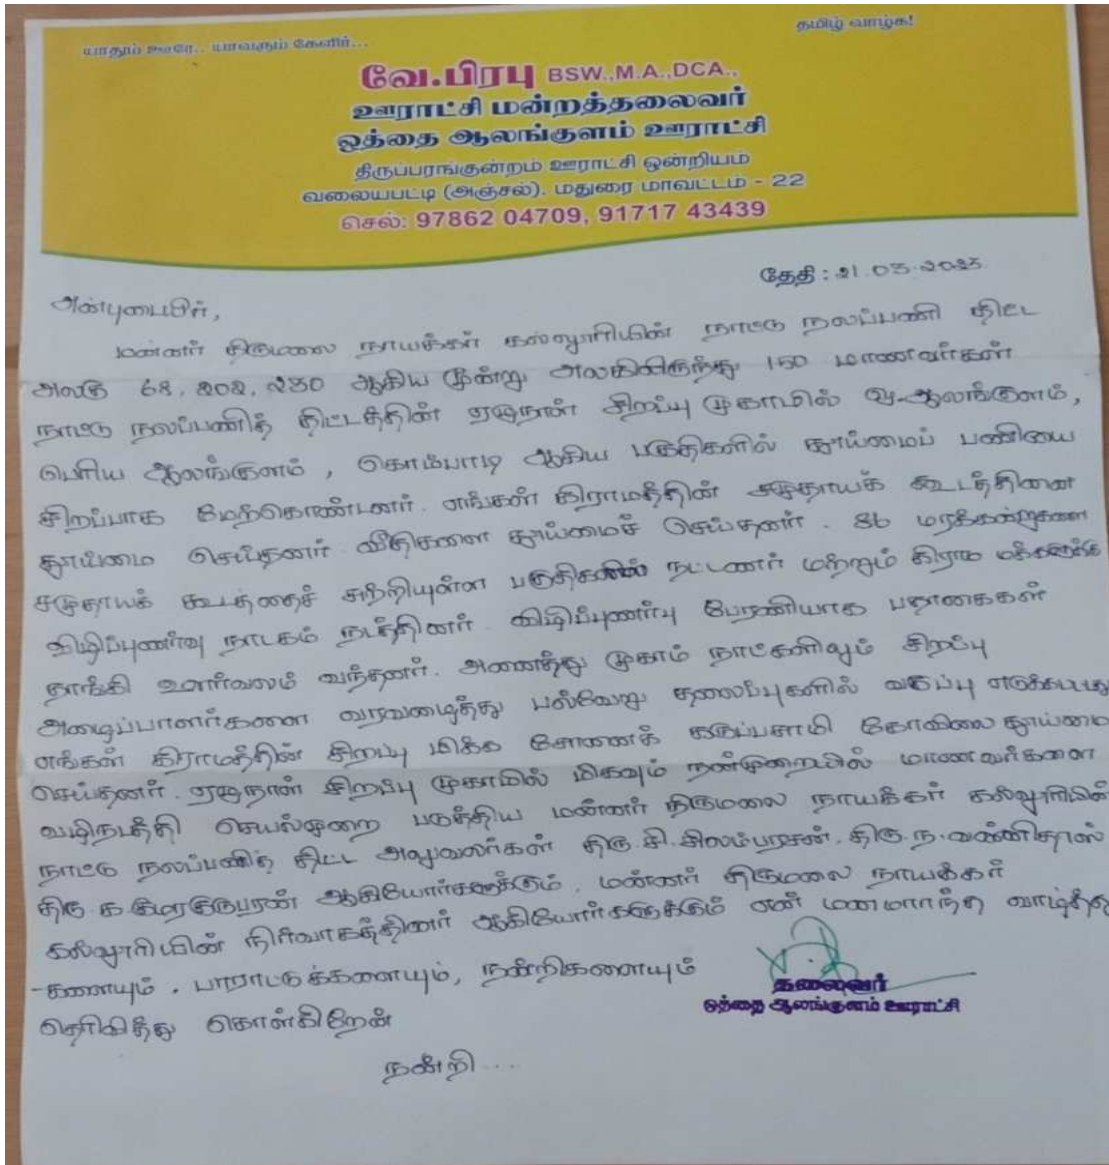 யாதும் ஊரே.. யாவரும் கேளிர்...
தமிழ் வாழ்க!
வே.பிரபு BSW.,M.A.,DCA.,
ஊராட்சி மன்றத்தலைவர்
ஒத்தை ஆலங்குளம் ஊராட்சி
திருப்பரங்குன்றம் ஊராட்சி ஒன்றியம்
வலையபட்டி (அஞ்சல்). மதுரை மாவட்டம் - 22
செல்: 97862 04709, 91717 43439
தேதி : 21.03.2023
அன்புடையீர்,
மன்னர் திருமலை நாயக்கர் கல்லூரியின் நாட்டு நலப்பணி திட்ட
அலகு 68, 202, 230 ஆகிய மூன்று அலகிலிருந்து 150 மாணவர்கள்
நாட்டு நலப்பணித் திட்டத்தின் ஏழுநாள் சிறப்பு முகாமில் ஒ.ஆலங்குளம்,
பெரிய ஆலங்குளம், கொம்பாடி ஆகிய பகுதிகளில் தூய்மைப் பணியை
சிறப்பாக மேற்கொண்டனர். எங்கள் கிராமத்தின் சமுதாயக் கூடத்தினை
தூய்மை செய்தனர். வீதிகளை தூய்மைச் செய்தனர். 86 மரக்கன்றுகளை
சமுதாயக் கூடத்தைச் சுற்றியுள்ள பகுதிகளில் நட்டணர் மற்றும் கிராம மக்களுக்கு
விழிப்புணர்வு நாடகம் நடத்தினர். விழிப்புணர்பு பேரணியாக பதாகைகள்
தாங்கி ஊர்வலம் வந்தனர். அனைத்து முகாம் நாட்களிலும் சிறப்பு
அழைப்பாளர்களை வரவழைத்து பல்வேறு தலைப்புகளில் வகுப்பு
எங்கள் கிராமத்தின் சிறப்பு மிக்க சோனைக் கருப்பசாமி கோவிலை தூய்மை
செய்தனர். ஏழுநாள் சிறப்பு முகாமில் மிகவும் நன்முறையில் மாணவர்களை
வழிநடத்தி செயல்முறை படுத்திய மன்னர் திருமலை நாயக்கர் கல்லூரியின்
நாட்டு நலப்பணித் திட்ட அலுவலர்கள் திரு.சி.சிலம்பரசன், திரு.ந.வன்னிதாஸ்
திரு.க.குமரகுருபரன் ஆகியோர்களுக்கும், மன்னர் திருமலை நாயக்கர்
கல்லூரியின் நிர்வாகத்தினர் ஆகியோர்களுக்கும் என் மனமார்ந்த வாழ்த்து
-களையும், பாராட்டுக்களையும், நன்றிகளையும்
தெரிவித்து கொள்கிறேன்
தலைவர்
ஒத்தை ஆலங்குளம் ஊராட்சி
நன்றி...